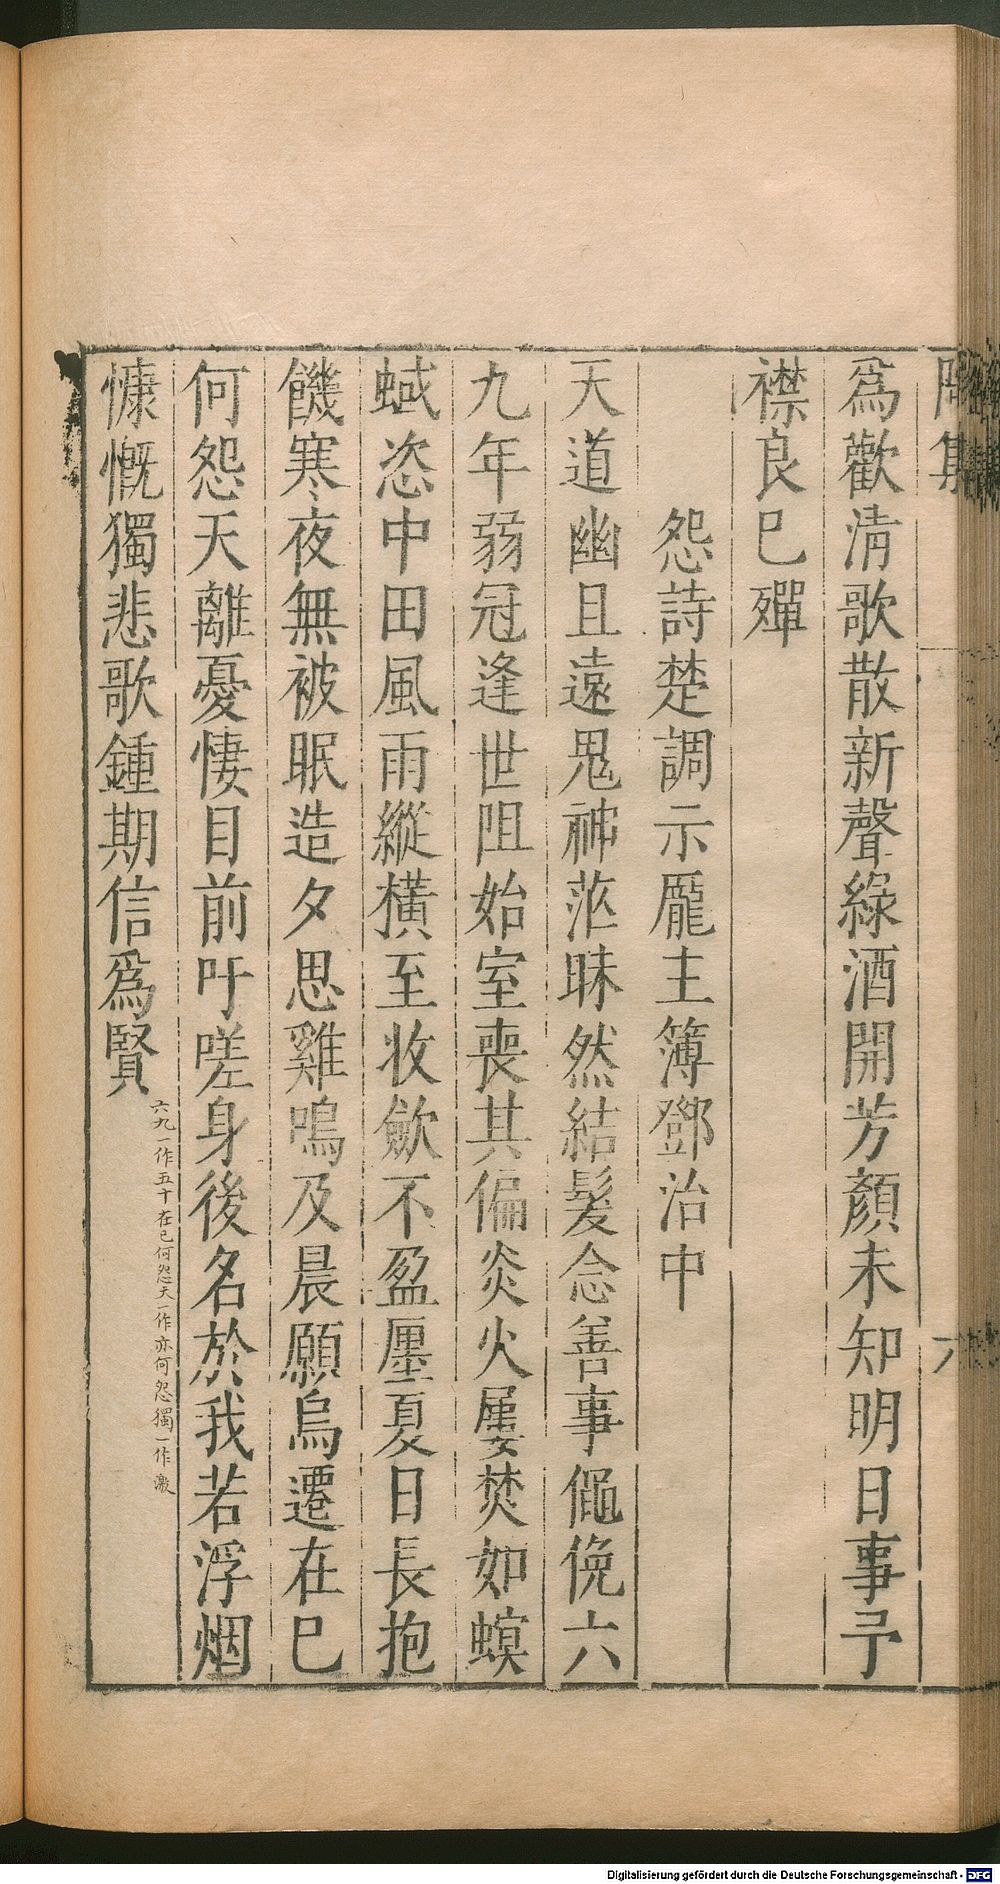 爲歡淸歌散新聲綠酒開芳顏未知明日事予
襟良已殫
怨詩楚調示龐主簿鄧治中
天道幽且遠鬼神茫昧然結髮念善事僶俛六
九年弱冠逢世阻始室喪其偏炎火屢焚如螟
蜮恣中田風雨縱橫至收斂不盈廛夏日長抱
饑寒夜無被眠造夕思雞鳴及晨願烏遷在已
何怨天離憂悽目前吁嗟身後名於我若浮烟
慷慨獨悲歌鍾期信爲賢
六九一作五十在已何怨天一作亦何怨獨一作激
Digitalisierung gefördert durch die Deutsche Forschungsgemeinschaft - DFG